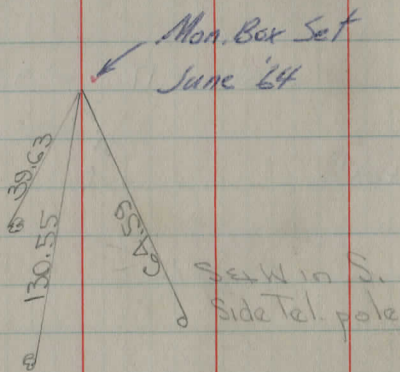 Mon. Box Set
June '64
39.63
130.55
64.59
S&W in S.
Side Tel. pole